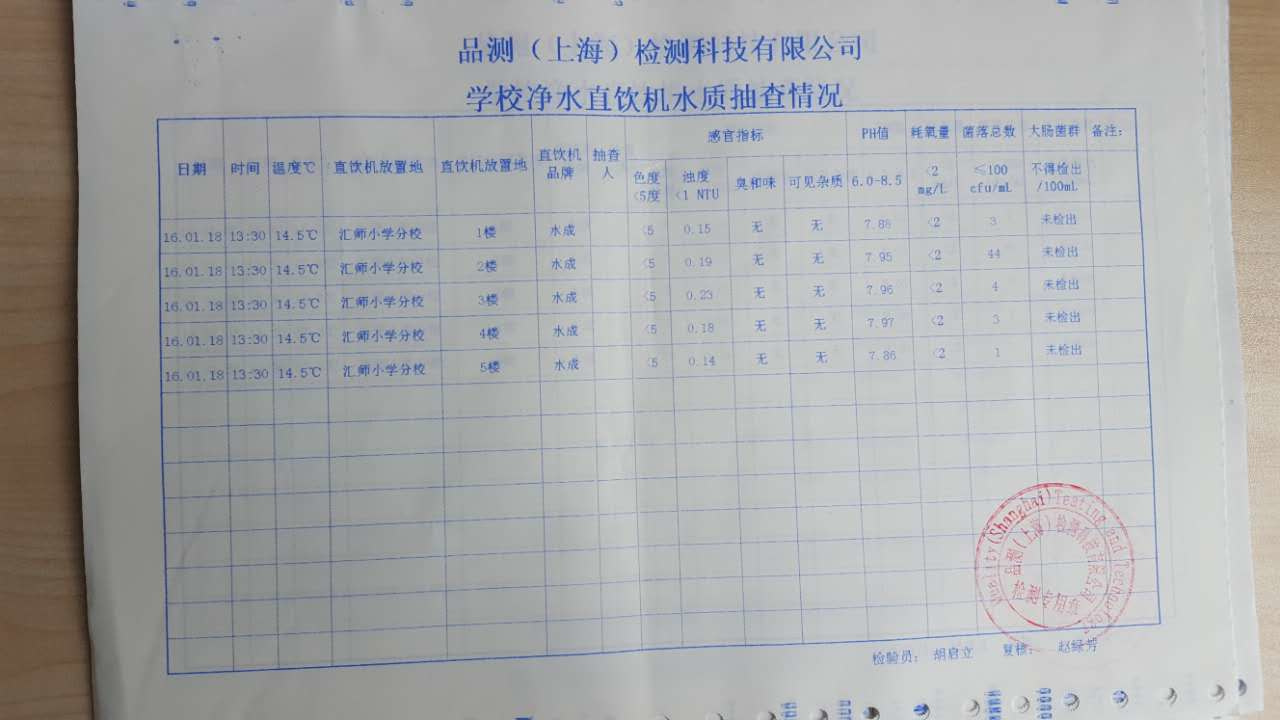 品测（上海）检测科技有限公司
学校净水直饮机水质抽查情况
日期 时间 温度℃ 直饮机放置地 直饮机放置地 直饮机品牌 抽查人 感官指标 PH值 耗氧量 菌落总数 大肠菌群 备注:
色度<5度 浊度<1 NTU 臭和味 可见杂质 6.0-8.5 <2 mg/L ≤100 cfu/mL 不得检出/100mL
16.01.18 13:30 14.5℃ 汇师小学分校 1楼 水成 <5 0.15 无 无 7.88 <2 3 未检出
16.01.18 13:30 14.5℃ 汇师小学分校 2楼 水成 <5 0.19 无 无 7.95 <2 44 未检出
16.01.18 13:30 14.5℃ 汇师小学分校 3楼 水成 <5 0.23 无 无 7.96 <2 4 未检出
16.01.18 13:30 14.5℃ 汇师小学分校 4楼 水成 <5 0.18 无 无 7.97 <2 3 未检出
16.01.18 13:30 14.5℃ 汇师小学分校 5楼 水成 <5 0.14 无 无 7.86 <2 1 未检出
Quality (Shanghai) Testing and
品测（上海）检测科技有限公司
检测专用章
检验员: 胡启立 复核: 赵绿芳